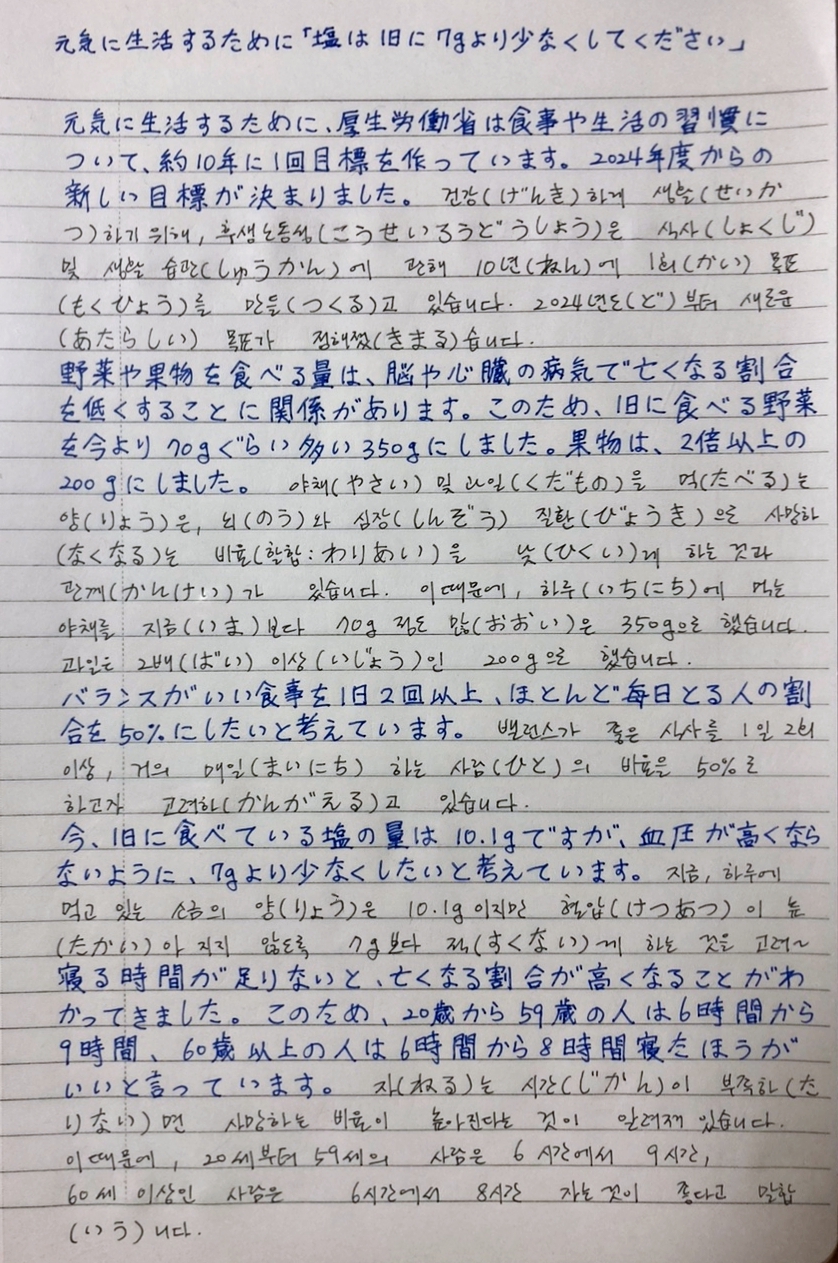 元気に生活するために「塩は1日に7gより少なくしてください」
元気に生活するために、厚生労働省は食事や生活の習慣に
ついて、約10年に1回目標を作っています。2024年度からの
新しい目標が決まりました。 건강(げんき)하게 생활(せいか
つ)하기 위해, 후생노동성(こうせいろうどうしょう)은 식사(しょくじ)
및 생활 습관(しゅうかん)에 관해 10년(ねん)에 1회(かい) 목표
(もくひょう)를 만들(つくる)고 있습니다. 2024년도(ど)부터 새로운
(あたらしい) 목표가 정해졌(きまる)습니다.
野菜や果物を食べる量は、脳や心臓の病気で亡くなる割合
を低くすることに関係があります。このため、1日に食べる野菜
を今より70gぐらい多い350gにしました。果物は、2倍以上の
200gにしました。 야채(やさい) 및 과일(くだもの)을 먹(たべる)는
양(りょう)은, 뇌(のう)와 심장(しんぞう) 질환(びょうき)으로 사망하
(なくなる)는 비율(할합:わりあい)을 낮(ひくい)게 하는 것과
관계(かんけい)가 있습니다. 이때문에, 하루(いちにち)에 먹는
야채를 지금(いま)보다 70g 정도 많(おおい)은 350g으로 했습니다.
과일은 2배(ばい) 이상(いじょう)인 200g으로 했습니다.
バランスがいい食事を1日2回以上、ほとんど毎日とる人の割
合を50%にしたいと考えています。 밸런스가 좋은 식사를 1일 2회
이상, 거의 매일(まいにち) 하는 사람(ひと)의 비율을 50%로
하고자 고려하(かんがえる)고 있습니다.
今、1日に食べている塩の量は10.1gですが、血圧が高くなら
ないように、7gより少なくしたいと考えています。 지금, 하루에
먹고 있는 소금의 양(りょう)은 10.1g이지만 혈압(けつあつ)이 높
(たかい)아 지지 않도록 7g보다 적(すくない)게 하는 것을 고려~
寝る時間が足りないと、亡くなる割合が高くなることがわ
かってきました。このため、20歳から59歳の人は6時間から
9時間、60歳以上の人は6時間から8時間寝たほうが
いいと言っています。 자(ねる)는 시간(じかん)이 부족하(た
りない)면 사망하는 비율이 높아진다는 것이 알려져 있습니다.
이때문에, 20세부터 59세의 사람은 6시간에서 9시간,
60세 이상인 사람은 6시간에서 8시간 자는것이 좋다고 말합
(いう)니다.